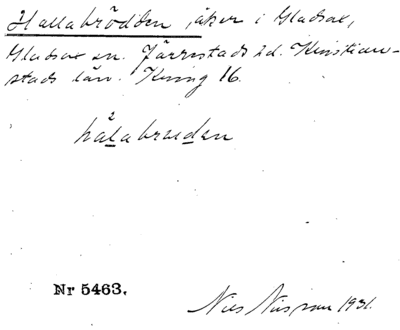 Hallabrödden, åker i Gladsax,
Gladsax sn. Järrestads hd. Kristian-
stads län. Kung 16.
hálabrœden
Nr 5463.
Nils Nilsson 1931.